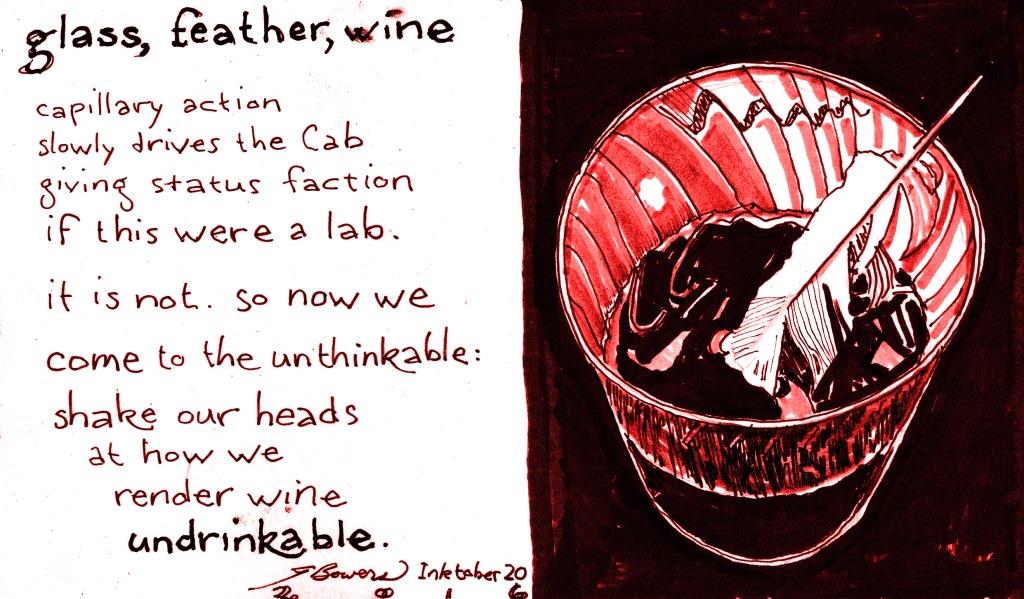 glass, feather, wine
capillary action
slowly drives the Cab
giving status faction
if this were a lab.
it is not. so now we
come to the unthinkable:
shake our heads
at how we
render wine
undrinkable.
J Bowers Inktober 20
2016